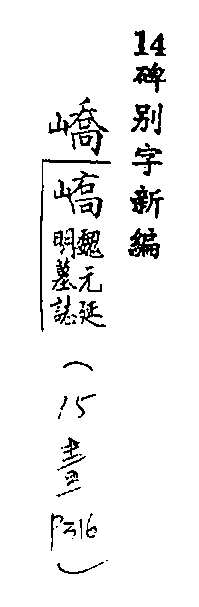 14碑別字新編
嶠
㠐魏元延
明墓誌
(15畫
P316)